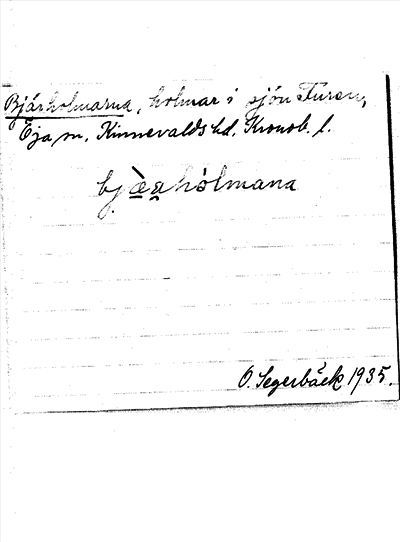 Bjärholmarna, holmar i sjön Furen,
Öja sn, Kinnevalds hd, Kronob. l.
bjæ̀ahólmana
O. Segerbäck 1935.